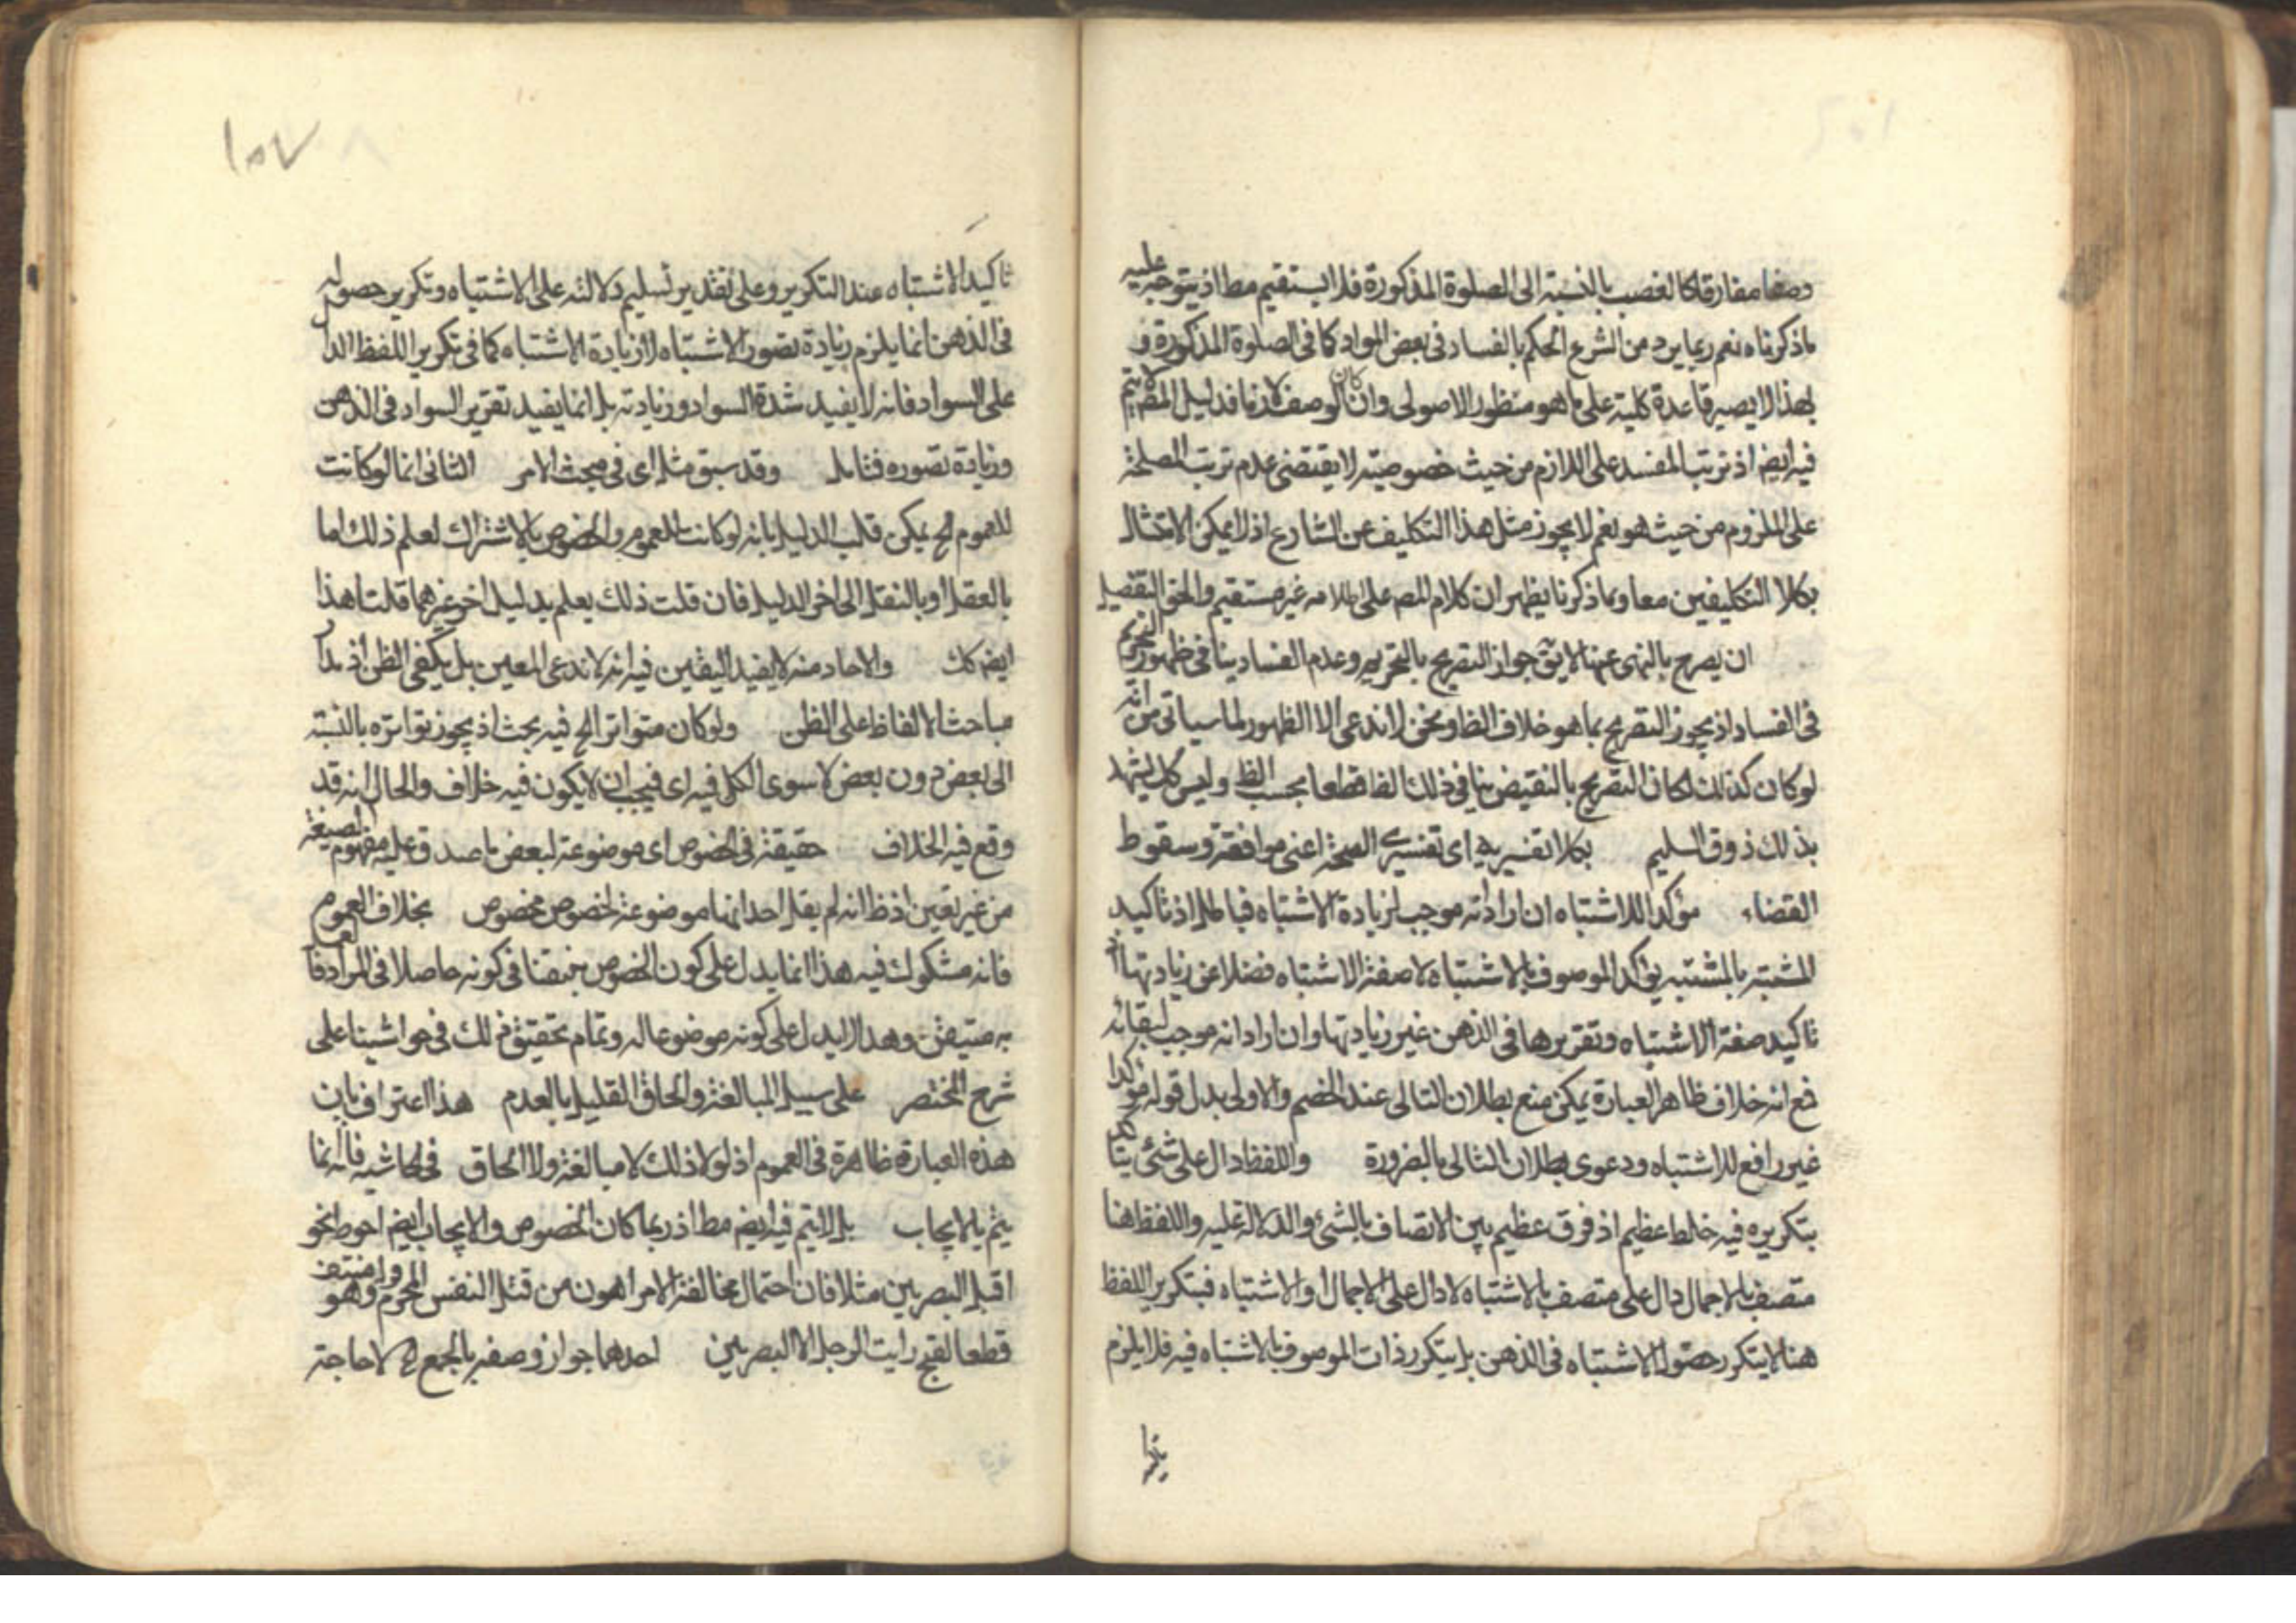 وصفا مفارقا كالغصب بالنسبة الى الصلوة المذكورة فلا يستقيم مطا اذ يتوجه عليه
ماذكرناه نعم ربما يرد من الشرع الحكم بالفساد فى بعض المواد كما فى الصلوة المذكورة و
بهذا لا يصير قاعدة كلية على ما هو منظور الاصولى وان كان الوصف لازما فدليل المص لا يتم
فيه ايض اذ ترتب المفسد على اللازم من حيث خصوصيته لا يقتضى عدم ترتب المصلحة
على الملزوم من حيث هو نعم لا يجوز مثل هذا التكليف عن الشارع اذ لا يمكن الامتثال
بكلا التكليفين معا وبما ذكرنا يظهر ان كلام المص على اطلاقه غير مستقيم والحق التفصيل
ان يصرح بالنهى عنها لا يق جواز التصريح بالتحريم وعدم الفساد ينافى ظهور التحريم
فى الفساد اذ يجوز التصريح بما هو خلاف الظا ونحن لا ندعى الا الظهور لما سياتى من انه
لو كان كذلك لكان التصريح بالنقيض ينافى ذلك الظا قطعا بحسب الظ وليس كل يشهد
بذلك ذوق السليم بكلا تفسيريه اى تفسيرى الصحة اعنى موافقة وسقوط
القضاء مؤكدا للاشتباه ان اراد انه موجب لزيادة الاشتباه فباطل اذ تاكيد
المشتبه بالمشتبه يؤكد الموصوف بالاشتباه لا صفة الاشتباه فضلا عن زيادتها اذ
تاكيد صفة الاشتباه وتقريرها فى الذهن غير زيادتها وان اراد انه موجب لبقائه
فمع انه خلاف ظاهر العبارة يمكن منع بطلان التالى عند الخصم والاولى بدل قوله مؤكدا
غير رافع للاشتباه ودعوى بطلان التالى بالضرورة واللفظ دال على شئ يتاكد
بتكريره فيه خلط عظيم اذ فرق عظيم بين الاتصاف بالشئ والدلالة عليه واللفظ هنا
متصف بالاجمال دال على متصف بالاشتباه لا دال على الاجمال او الاشتباه فبتكرير اللفظ
هنا لا يتكرر حصول الاشتباه فى الذهن بل يتكرر ذات الموصوف بالاشتباه فيه فلا يلزم
١٥٧
تاكيد الاشتباه عند التكرير وعلى تقدير تسليم دلالته على الاشتباه وتكرير حصوله
فى الذهن انما يلزم زيادة تصور الاشتباه لا زيادة الاشتباه كما فى تكرير اللفظ الدال
على السواد فانه لا يفيد شدة السواد وزيادته بل انما يفيد تقرير السواد فى الذهن
وزيادة تصوره فتامل وقد سبق مثله اى فى مبحث الامر الثانى انها لو كانت
للعموم الخ يمكن قلب الدليل بانه لو كانت للعموم والخصوص بالاشتراك لعلم ذلك اما
بالعقل او بالنقل الى اخر الدليل فان قلت ذلك يعلم بدليل اخر غيرهما قلت هذا
ايض كك والاحاد منه لا يفيد اليقين فيه انه لا ندعى اليقين بل يكفى الظن اذ مدار
مباحث الالفاظ على الظن ولو كان متواترا الخ فيه بحث اذ يجوز تواتره بالنسبة
الى بعض دون بعض لاسوى الكل فيه اى فيجب ان لا يكون فيه خلاف والحال انه قد
وقع فيه الخلاف حقيقة فى الخصوص اى موضوعة لبعض ما صدق عليه مفهوم الصيغة
من غير تعيين اذ ظ انه لم يقل احد انها موضوعة لخصوص مخصوص بخلاف العموم
فانه مشكوك فيه هذا انما يدل على كون الخصوص متيقنا فى كونه حاصلا فى المراد
متيقن وهذا لا يدل على كونه موضوعا له وتمام تحقيق ذلك فى حواشينا على
شرح المختصر على سبيل المبالغة والحاق القليل بالعدم هذا اعتراف بان
هذه العبارة ظاهرة فى العموم اذ لولا ذلك لا مبالغة ولا الحاق فى الحاشية فانه انما
يتم بالايجاب بل لا يتم فيه ايض مطا اذ ربما كان الخصوص والايجاب ايض احوط نحو
اقتل البصريين مثلا فان احتمال مخالفة الامر اهون من قتل النفس المحرم وهو
قطعا لقبح رايت الرجل الا البصريين احدهما جواز وصفه بالجمع لا حاجة